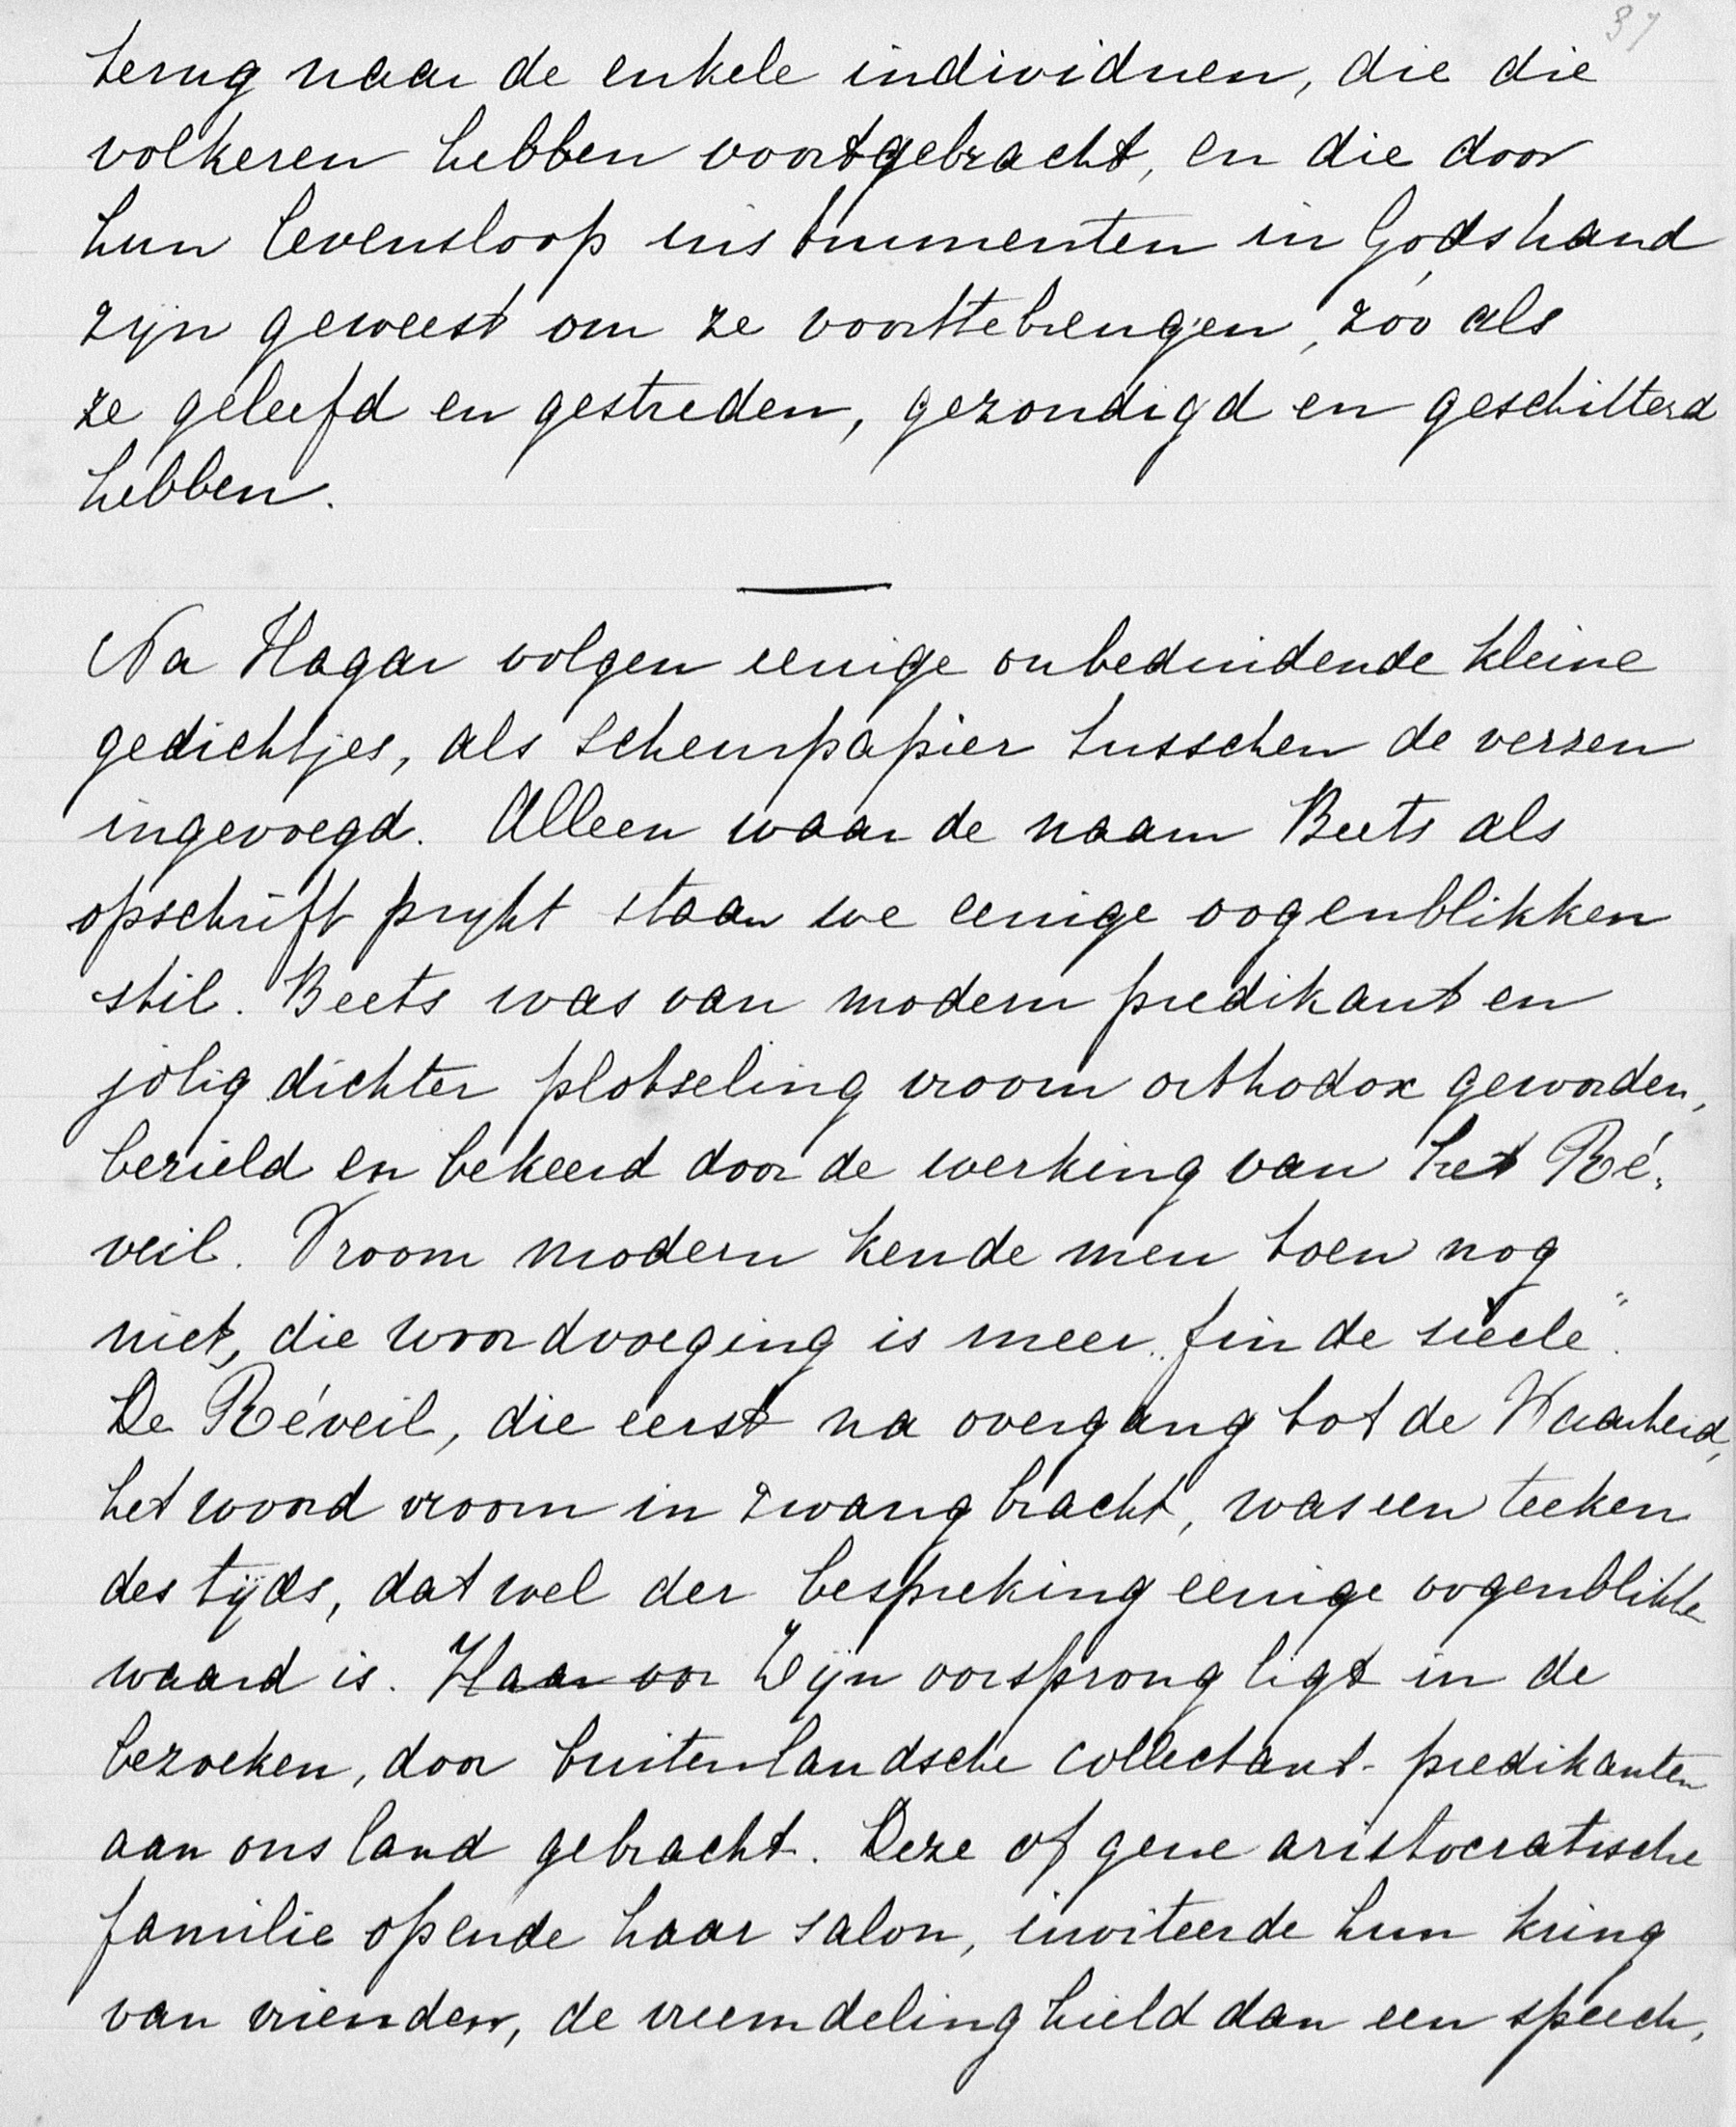 37
terug naar de enkele individuen, die die
volkeren hebben voortgebracht, en die door
hun levensloop instrumenten in Godshand
zijn geweest om ze voorttebrengen, zóó als
ze geleefd en gestreden, gezondigd en geschitterd
hebben.
Na Hagar volgen eenige onbeduidende kleine
gedichtjes, als scheurpapier tusschen de verzen
ingevoegd. Alleen waar de naam Beets als
opschrift prijkt staan we eenige oogenblikken
stil. Beets was van modern predikant en
jolig dichter plotseling vroom orthodox geworden,
bezield en bekeerd door de werking van het Ré-
veil. Vroom modern kende men toen nog
niet, die woordvoeging is meer „fin de siècle".
De Réveil, die eerst na overgang tot de Waarheid,
het woord vroom in zwang bracht, was een teeken
des tijds, dat wel der bespreking eenige oogenblikke
waard is. Haar oor Zijn oorsprong ligt in de
bezoeken, door buitenlandsche collectant-predikanten
aan ons land gebracht. Deze of gene aristocratische
familie opende haar salon, inviteerde hun kring
van vrienden, de vreemdeling hield dan een speech,